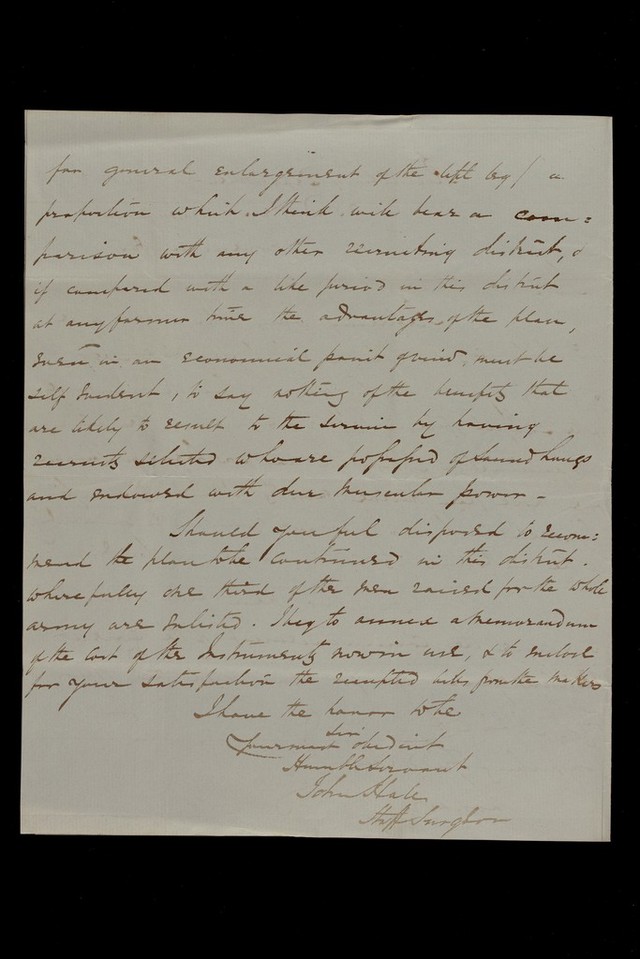 for general enlargement of the left leg / a
proportion which I think will bear a com=
parison with any other recruiting district, &
if compared with a like period in this district
at any former time the advantages of the plan,
even in an economical point of view, must be
self evident, to say nothing of the benefits that
are likely to result to the service by having
recruits selected who are possessed of sound lungs
and endowed with due muscular power -
Should you feel disposed to recom=
mend the plan to be continued in this district.
where fully one third of the men raised for the whole
army are enlisted. I beg to annex a Memorandum
of the Cost of the Instruments now in use, & to enclose
for your satisfaction the receipted bills from the Makers
I have the honor to be
Sir
Your most obedient
Humble Servant
John Hall
Staff Surgeon